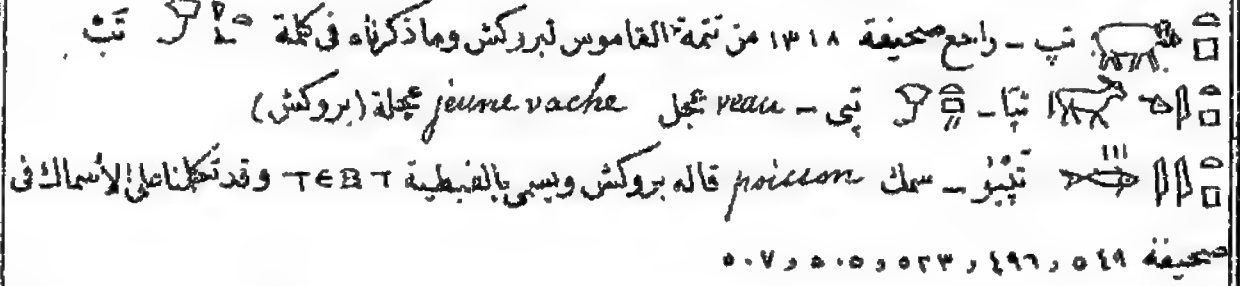 تپ - راجع صحيفة ١٣١٨ من تتمة القاموس لبروكش وما ذكرناه فى كلمة تَبْ
تپا - تپى - veau عجل jeune vache عجلة (بروكش)
سمك poisson قاله بروكش ويسمى بالقبطية ⲦⲈⲂⲦ وقد تكلمنا على الأسماك فى
صحيفة ٥٤٩ و ٤٩٦ و ٥٢٣ و ٥٠٥ و ٥٠٧